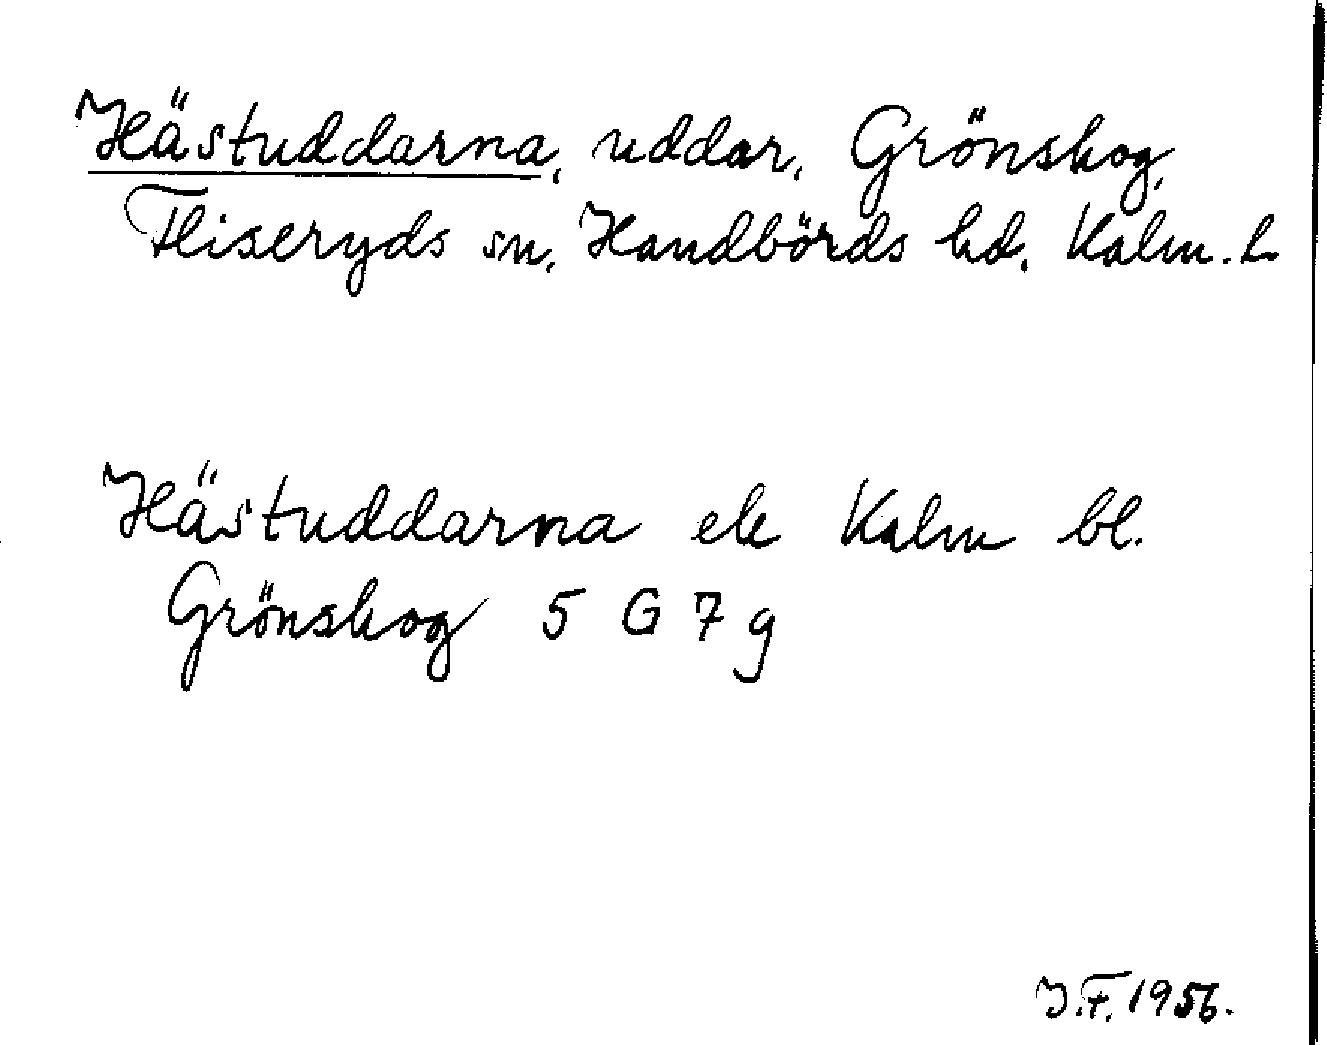 Hästuddarna, uddar, Grönskog,
Fliseryds sn, Handbörds hd, Kalm. L
Hästuddarna ek Kalm bl.
Grönskog 5 G 7 g
J.F. 1956.